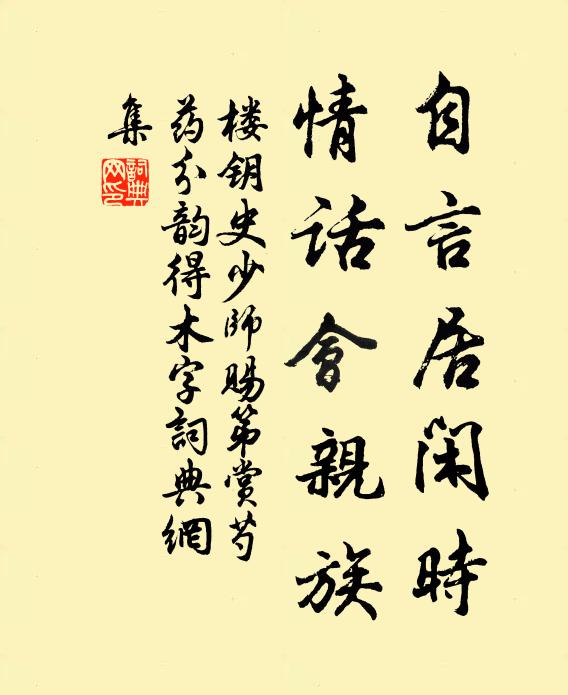 自言居闲時
情话會親族
楼钥史少師賜第赏芍
药分韵得木字詞典網
集
詞典
网印